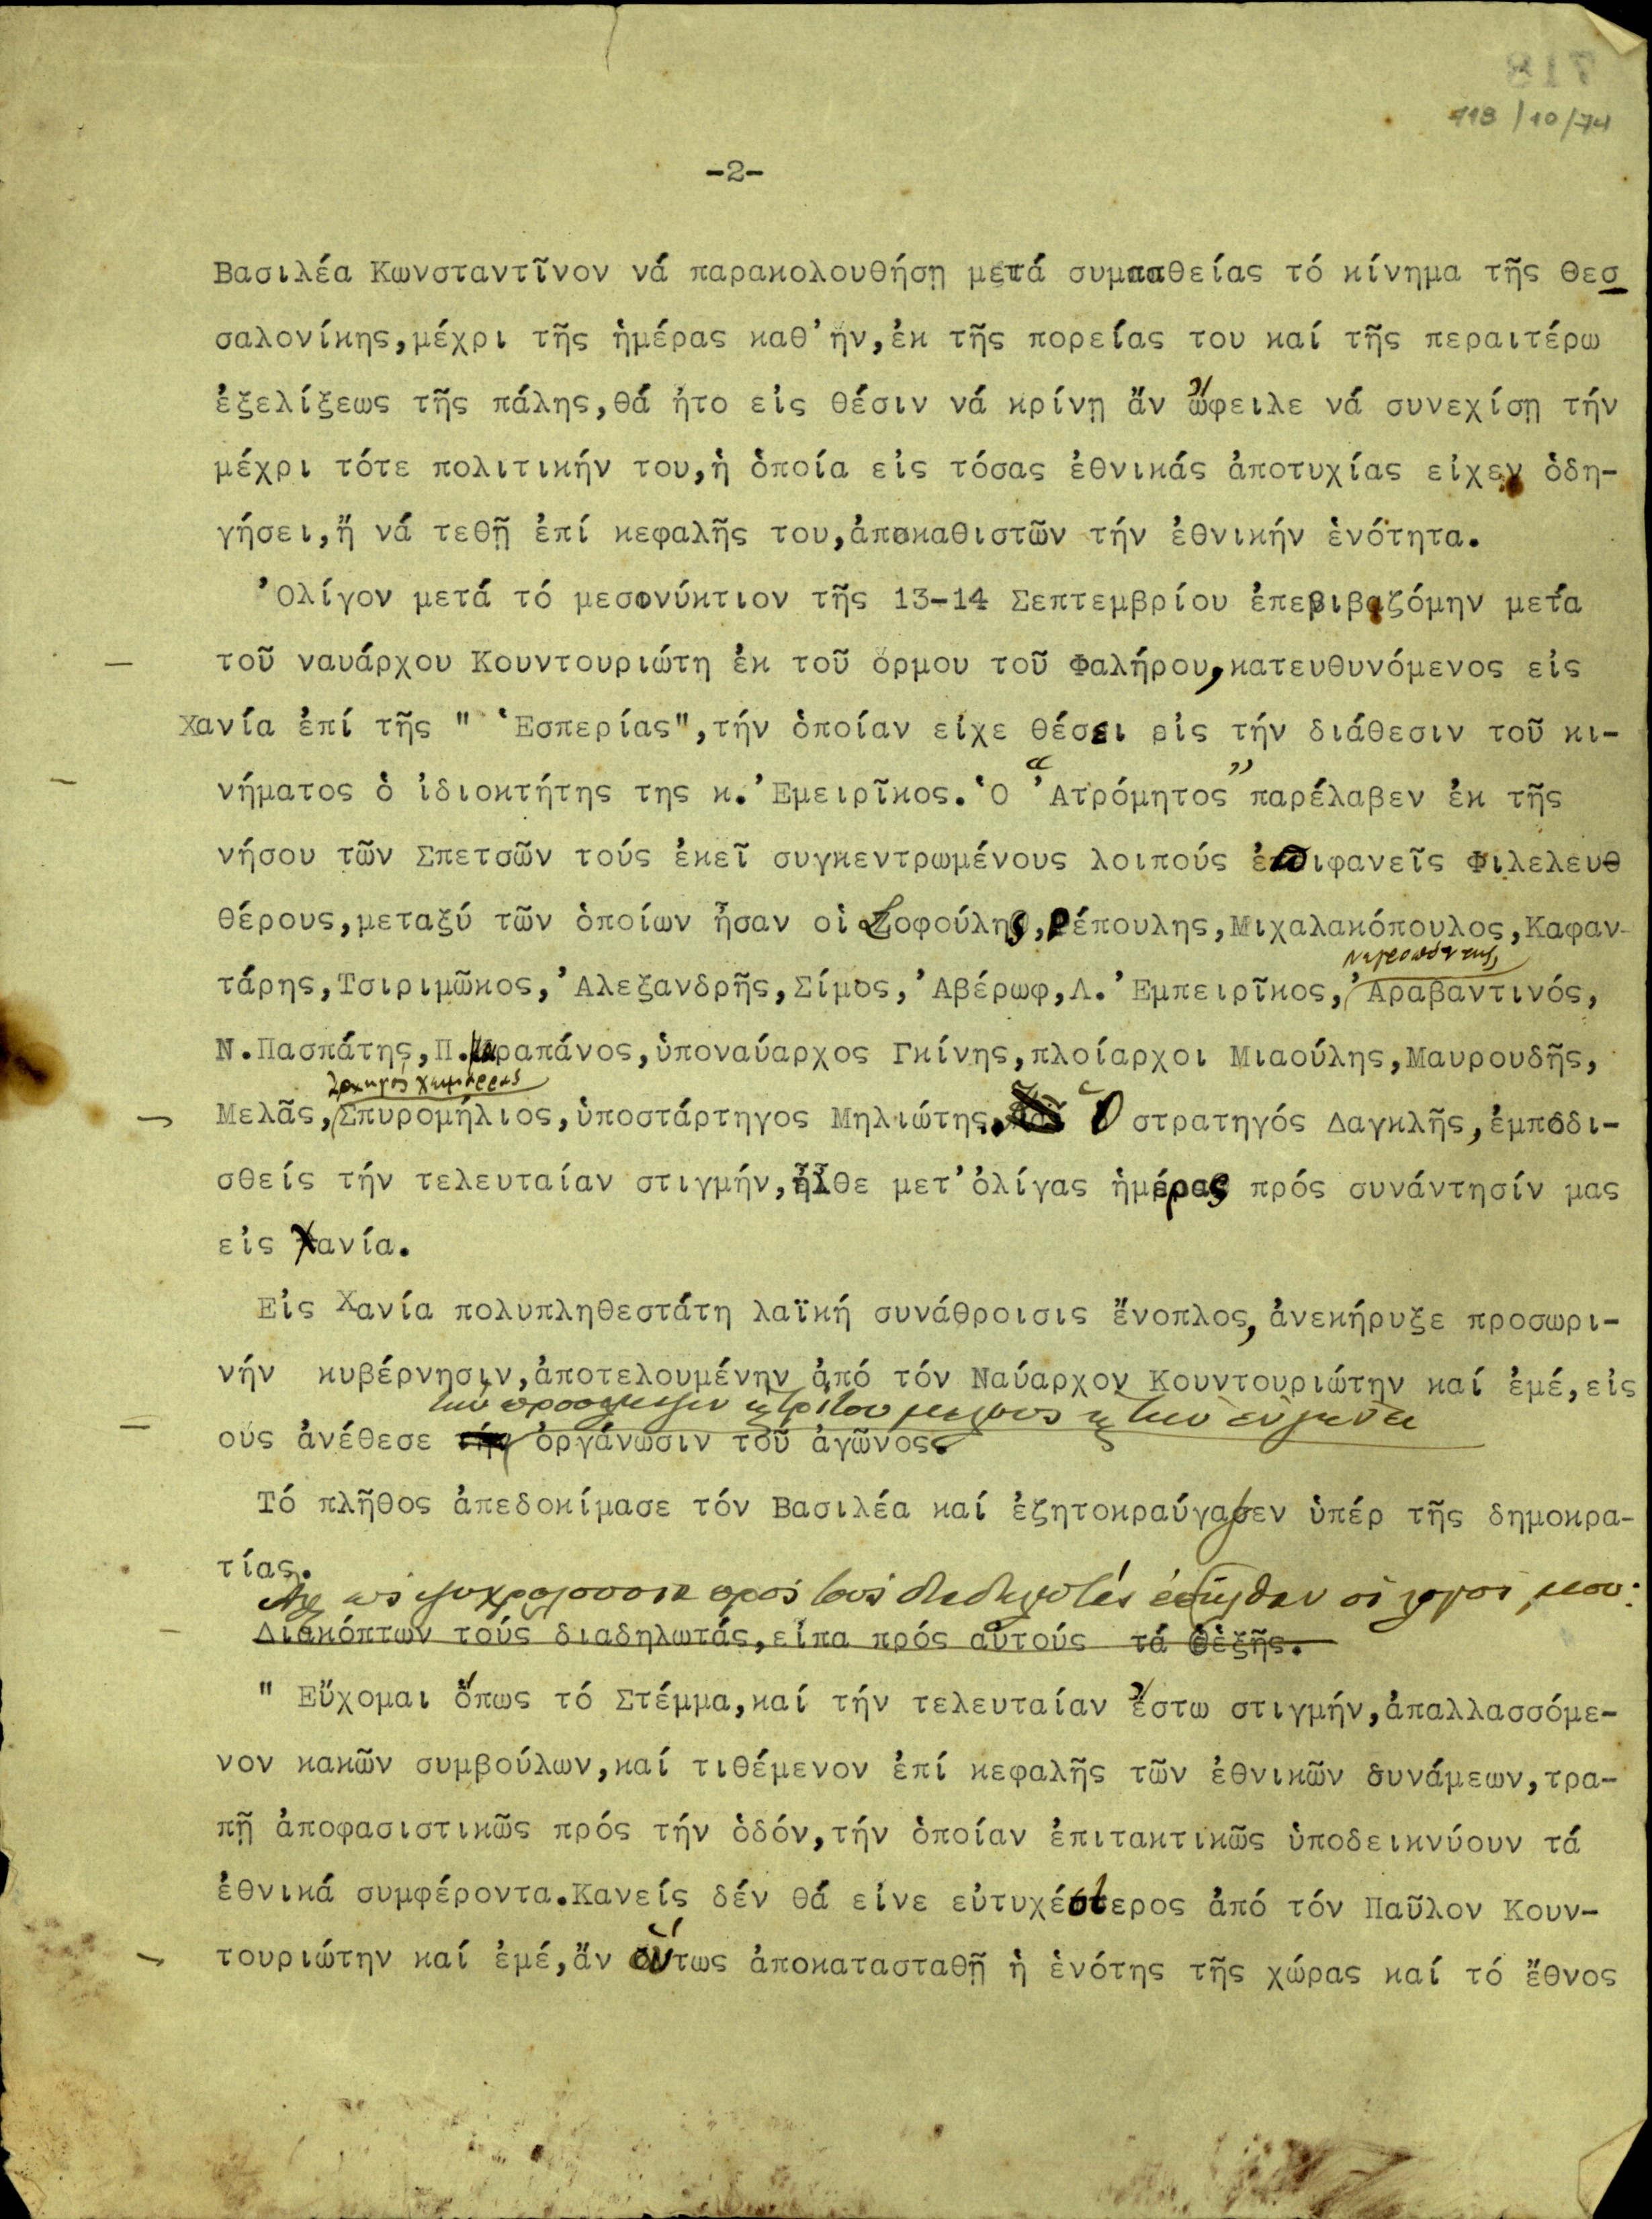 718
718/10/74
-2-
Βασιλέα Κωνσταντῖνον νά παρακολουθήσῃ μετά συμπαθείας τό κίνημα τῆς Θεσ
σαλονίκης,μέχρι τῆς ἡμέρας καθ'ἥν,ἐκ τῆς πορείας του καί τῆς περαιτέρω
ἐξελίξεως τῆς πάλης,θά ἦτο εἰς θέσιν νά κρίνῃ ἄν ὤφειλε νά συνεχίσῃ τήν
μέχρι τότε πολιτικήν του,ἡ ὁποία εἰς τόσας ἐθνικάς ἀποτυχίας εἶχεν ὁδη-
γήσει,ἤ νά τεθῇ ἐπί κεφαλῆς του,ἀποκαθιστῶν τήν ἐθνικήν ἑνότητα.
'Ολίγον μετά τό μεσονύκτιον τῆς 13-14 Σεπτεμβρίου ἐπεβιβαζόμην μετά
τοῦ ναυάρχου Κουντουριώτη ἐκ τοῦ ὅρμου τοῦ Φαλήρου,κατευθυνόμενος εἰς
Χανία ἐπί τῆς " Ἑσπερίας",τήν ὁποίαν εἶχε θέσει εἰς τήν διάθεσιν τοῦ κι-
νήματος ὁ ἰδιοκτήτης της κ.'Εμειρῖκος.Ὁ "'Ατρόμητος" παρέλαβεν ἐκ τῆς
νήσου τῶν Σπετσῶν τούς ἐκεῖ συγκεντρωμένους λοιπούς ἐπιφανεῖς Φιλελευθ
θέρους,μεταξύ τῶν ὁποίων ἦσαν οἱ Σοφούλης,Ρέπουλης,Μιχαλακόπουλος,Καφαν-
Νεγρεπόντης,
τάρης,Τσιριμῶκος,'Αλεξανδρῆς,Σίμος,'Αβέρωφ,Λ.'Εμπειρῖκος,'Αραβαντινός,
Ν.Πασπάτης,Π.Καραπάνος,ὑποναύαρχος Γκίνης,πλοίαρχοι Μιαούλης,Μαυρουδῆς,
ἀρχηγός Χειμάρρας
Μελᾶς,Σπυρομήλιος,ὑποστάρτηγος Μηλιώτης. Ὁ στρατηγός Δαγκλῆς,ἐμποδι-
σθείς τήν τελευταίαν στιγμήν,ἦλθε μετ'ὀλίγας ἡμέρας πρός συνάντησίν μας
εἰς Χανία.
Εἰς Χανία πολυπληθεστάτη λαϊκή συνάθροισις ἔνοπλος,ἀνεκήρυξε προσωρι-
νήν κυβέρνησιν,ἀποτελουμένην ἀπό τόν Ναύαρχον Κουντουριώτην καί ἐμέ,εἰς
τήν πρόσληψιν κ τρίτου μέλους κ τήν
οὕς ἀνέθεσε τήν ὀργάνωσιν τοῦ ἀγῶνος.
Τό πλῆθος ἀπεδοκίμασε τόν Βασιλέα καί ἐζητοκραύγασεν ὑπέρ τῆς δημοκρα-
τίας.
πρός τούς διαδηλωτάς οἱ λόγοι μου:
Διακόπτων τούς διαδηλωτάς,εἶπα πρός αὐτούς τά ἑξῆς.
" Εὔχομαι ὅπως τό Στέμμα,καί τήν τελευταίαν ἔστω στιγμήν,ἀπαλλασσόμε-
νον κακῶν συμβούλων,καί τιθέμενον ἐπί κεφαλῆς τῶν ἐθνικῶν δυνάμεων,τρα-
πῇ ἀποφασιστικῶς πρός τήν ὁδόν,τήν ὁποίαν ἐπιτακτικῶς ὑποδεικνύουν τά
ἐθνικά συμφέροντα.Κανείς δέν θά εἶνε εὐτυχέστερος ἀπό τόν Παῦλον Κουν-
τουριώτην καί ἐμέ,ἄν οὕτως ἀποκατασταθῇ ἡ ἑνότης τῆς χώρας καί τό ἔθνος